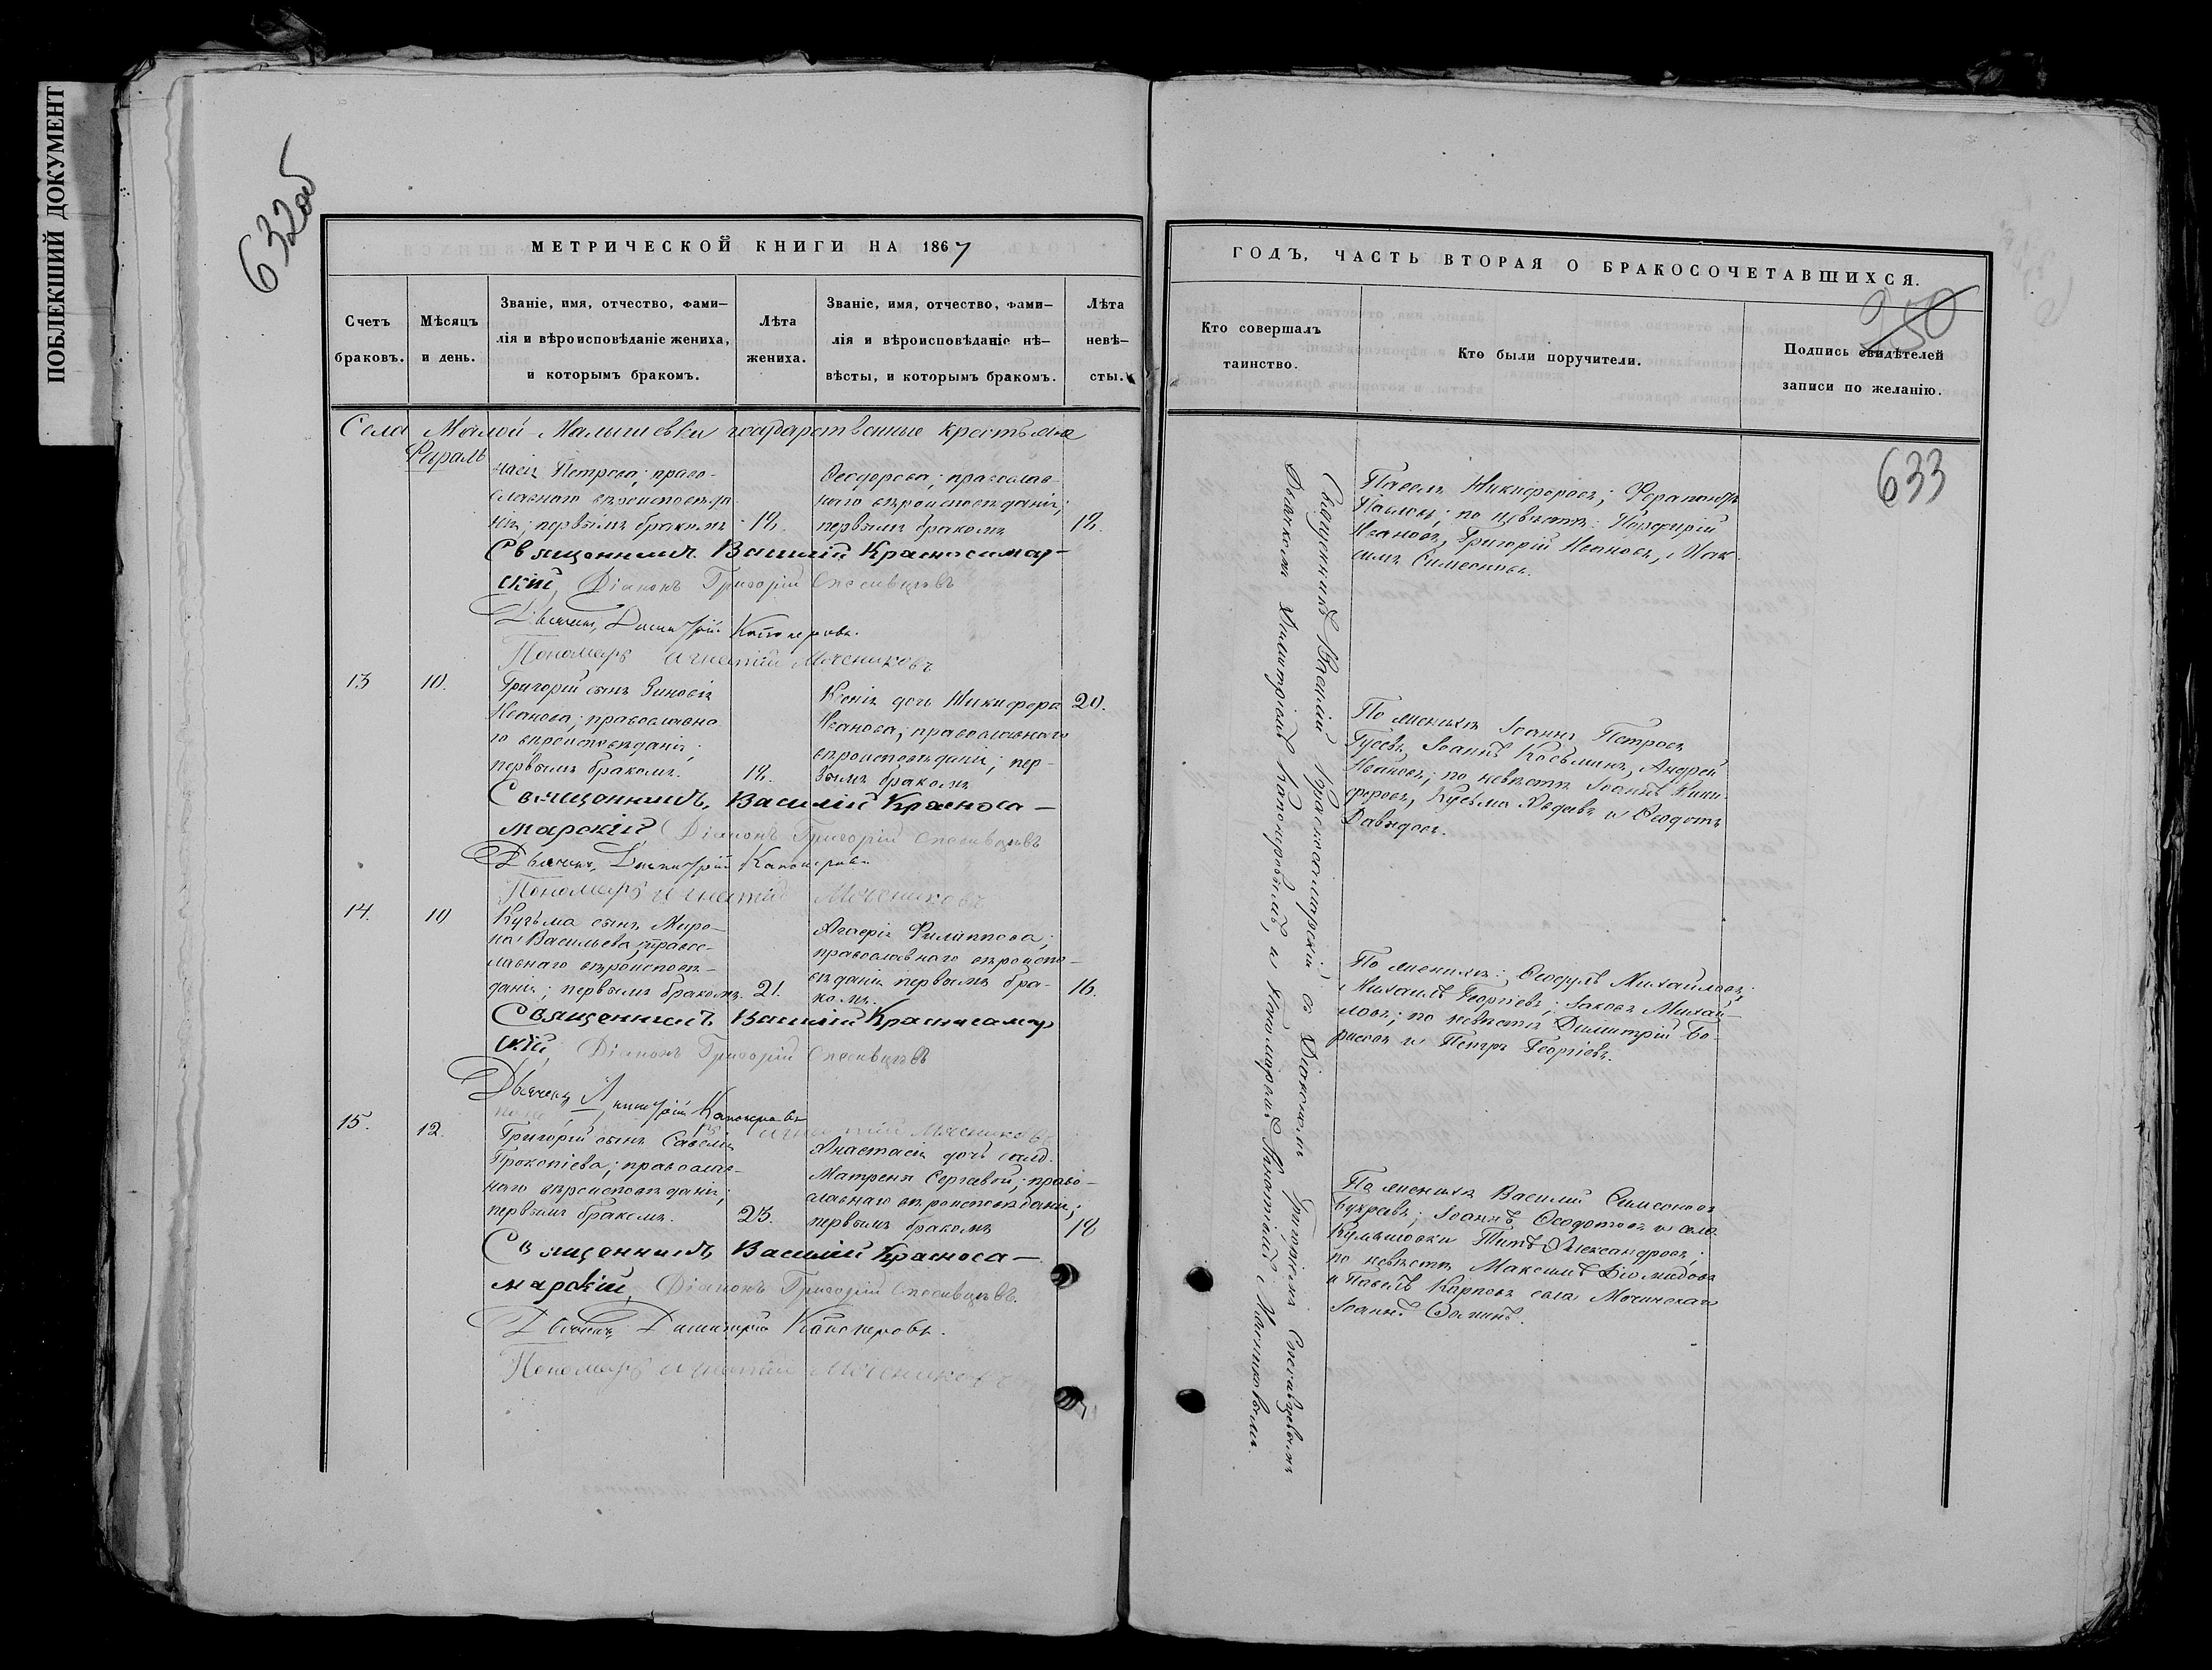 ПОБЛЕКШИЙ ДОКУМЕНТ
632 об
МЕТРИЧЕСКОЙ КНИГИ НА 1867
Счетъ браковъ.
Мѣсяцъ и день.
Званіе, имя, отчество, фами-
лія и вѣроисповѣданіе жениха,
и которымъ бракомъ.
Лѣта жениха.
Званіе, имя, отчество, фами-
лія и вѣроисповѣданіе нѣ-
вѣсты, и которымъ бракомъ.
Лѣта
невѣ-
сты.
Села Малой-Малышевки государственные крестьяне
Февраль
Петрова; право-
славнаго вѣроисповѣда-
нія; первымъ бракомъ
18.
Ѳеодорова; православ-
наго вѣроисповѣданія;
первымъ бракомъ
18.
Священникъ Василій Красносамар-
скій, Діаконъ Григорій Спесивцевъ
Дьячекъ, Димитрій Канонеровъ.
Пономарь Игнатій Мясниковъ
13
10.
Григорій сынъ Зиновія
Иванова; православна
го вѣроисповѣданія;
первымъ бракомъ.
18.
Ксенія дочь Никифора
Иванова; православнаго
вѣроисповѣданія; пер-
вымъ бракомъ
20.
Священникъ, Василій Красноса-
марскій, Діаконъ Григорій Спесивцевъ
Дьячекъ, Димитрій Канонеровъ
Пономарь Игнатій Мясниковъ
14.
10
Кузьма сынъ Миро-
на Васильева; право-
славнаго вѣроисповѣ-
данія; первымъ бракомъ.
21.
Агафія Филиппова;
православнаго вѣроиспо-
вѣданія первымъ бра-
комъ.
16.
Священникъ Василій Красносамар
скій, Діаконъ Григорій Спесивцевъ
Дьячекъ Димитрій Канонеровъ
Игнатій Мясниковъ
15.
12.
Григорій сынъ Савелія
Прокопіева; православ-
наго вѣроисповѣданія;
первымъ бракомъ.
23.
Анастасія дочь солд.
Матрены Сергѣевой; право-
славнаго вѣроисповѣданія;
первымъ бракомъ
18
Священникъ Василій Красноса-
марскій, Діаконъ Григорій Спесивцевъ.
Дьячекъ Димитрій Канонеровъ.
Пономарь Игнатій Мясниковъ
ГОДЪ, ЧАСТЬ ВТОРАЯ О БРАКОСОЧЕТАВШИХСЯ.
Кто совершалъ
таинство.
Кто были поручители.
Подпись свидѣтелей
записи по желанію.
350
633
Священникъ Василій Красносамарскій съ Діакономъ Григоріемъ Спесивцевымъ
Дьячкомъ Димитріемъ Канонеровымъ, и Пономаремъ Игнатіемъ Мясниковымъ.
Павелъ Никифоровъ; Ферапонтъ
Павловъ; по невѣстѣ: Порфирій
Ивановъ, Григорій Ивановъ, Мак-
симъ Симеоновъ.
По женихѣ Іоаннъ Петровъ
Гусевъ, Іоаннъ Косьминъ, Андрей
Ивановъ; по невѣстѣ Іоаннъ Ники-
форовъ, Кузьма и Ѳеодотъ
Давыдовъ.
По женихѣ: Ѳеодулъ Михайловъ;
Михаилъ Георгіевъ; Іаковъ Михай-
ловъ; по невѣстѣ Димитрій Бо-
рисовъ и Петръ Георгіевъ.
По женихѣ Василій Симеоновъ
Іоаннъ Ѳеодотовъ и села
Титъ Александровъ;
по невѣстѣ Максимъ Діомидовъ
и Павелъ Карповъ села Мочинскаго
Іоаннъ Ѳоминъ.